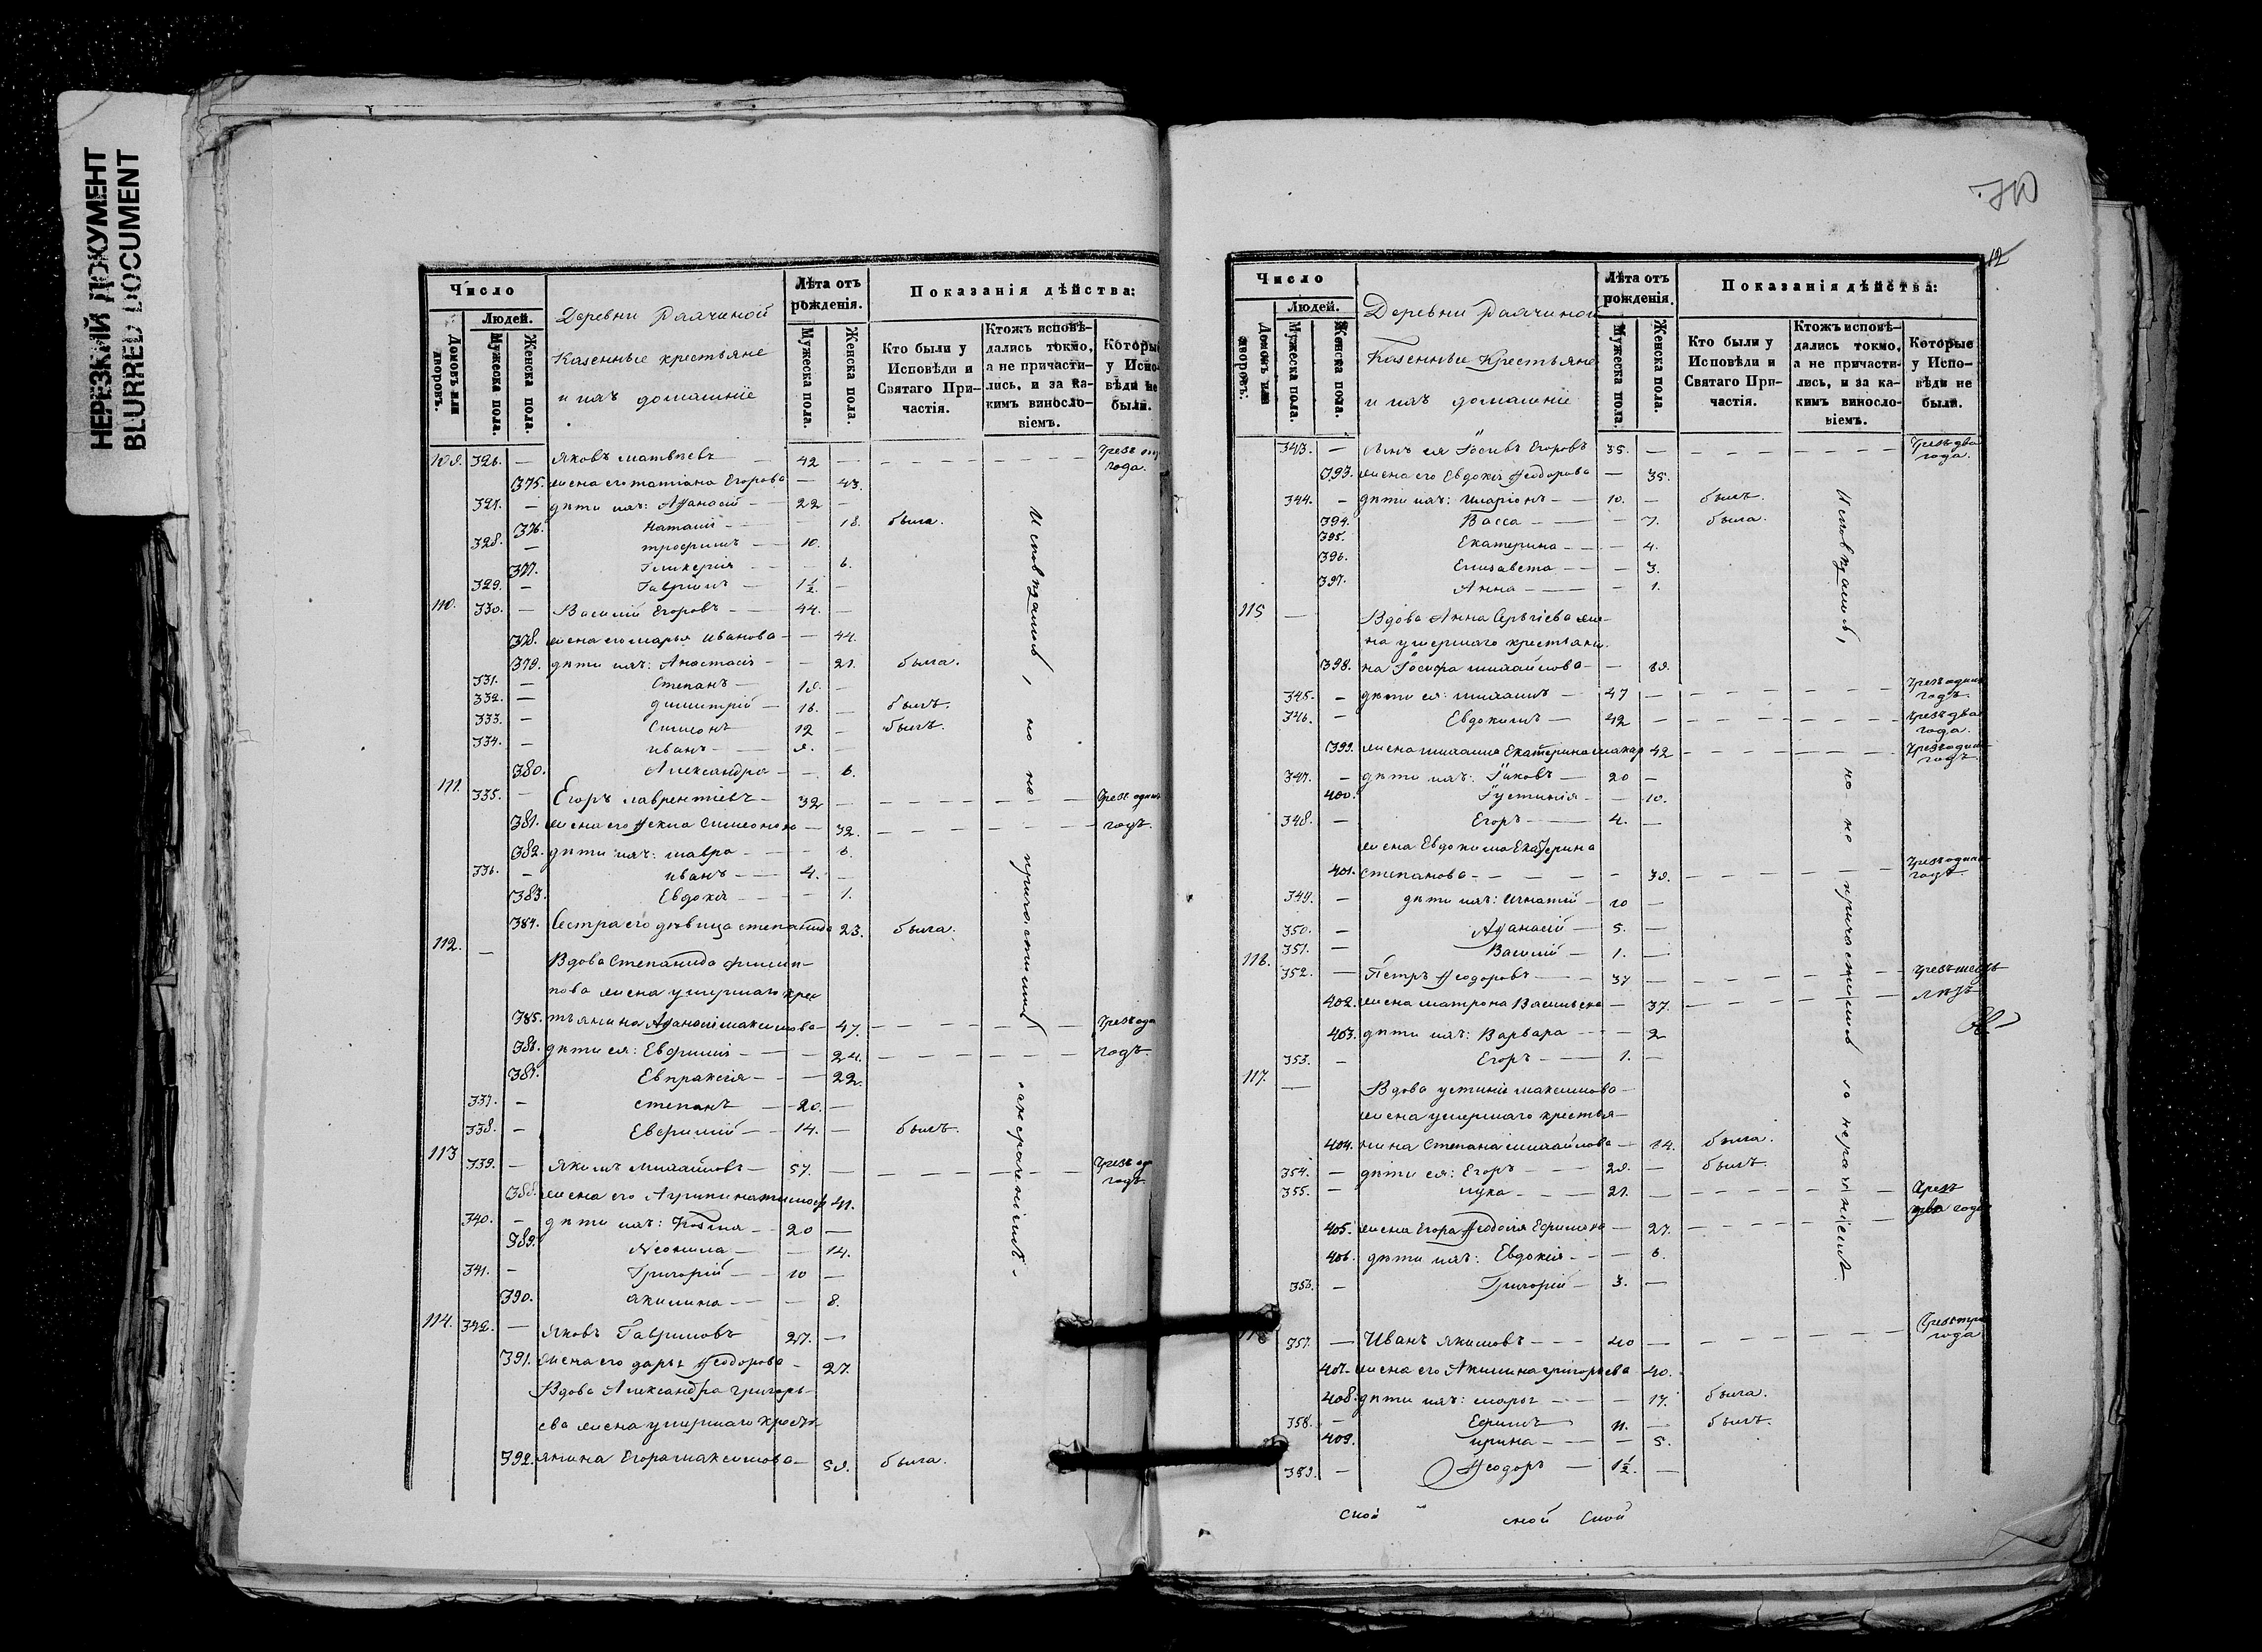 НЕРЕЗКИЙ ДОКУМЕНТ
BLURRED DOCUMENT
Число
Людей.
Домовъ или дворовъ.
Мужеска пола.
Женска пола.
Деревни
Казенные крестьяне
и ихъ домашніе
Лѣта отъ рожденія.
Мужеска пола.
Женска пола.
Показанія дѣйства:
Кто были у Исповѣди и Святаго Причастія.
Ктожъ исповѣдались токмо, а не причастились, и за какимъ винословіемъ.
Которые у Исповѣди не были.
109. 326. — Яковъ Матвѣевъ — 42 —
375. жена его Татіана Егорова — 43.
327. — дѣти ихъ: Афанасій — 22 —
376. Наталія — 18. была.
328. — Трофимъ — 10.
377. Гликерія — 6.
329. — Гавріилъ — 1½. —
110. 330. — Василій Егоровъ — 44. —
378. жена его Марья Иванова — 44.
379. дѣти ихъ: Анастасія — 21. была.
331. — Степанъ — 19. —
332. — Димитрій — 16. — былъ.
333. — Симеонъ 12 — былъ.
334. — Иванъ — 9. —
380. Александра — 6.
111. 335. — Егоръ Лаврентіевъ — 32 — Чрезъ одинъ
381. жена его Фекла Симеонова — 32. годъ.
382. дѣти ихъ: Мавра — 6.
336. — Иванъ — 4. —
383. Евдокія — 1.
384. Сестра его дѣвица Степанида 23. была.
112. — Вдова Степанида Филип-
пова жена умершаго крес
385. тьянина Афанасія Максимова — 47.
386. дѣти ея: Евфимія — 24. годъ.
387. Евпраксія — 22.
337. — Степанъ — 20. —
338. — Евфимій — 14. — былъ.
113 339. — Якимъ Михайловъ — 57. —
388. жена его Агрипина 41.
340. — дѣти ихъ: Козма — 20 —
389. Неонила — 14.
341. — Григорій — 10 —
390. Акилина — 8.
114. 342. — Яковъ Гавриловъ 27. —
391. жена его Дарья Феодорова — 27.
Вдова Александра Григорь-
ева жена умершаго крестя
392. янина Егора Максимова — 59. была.
Исповѣдались, но не причастились за нераченіемъ.
70
12
Число
Людей.
Домовъ или дворовъ.
Мужеска пола.
Женска пола.
Деревни
Казенные Крестьяне
и ихъ домашніе
Лѣта отъ рожденія.
Мужеска пола.
Женска пола.
Показанія дѣйства:
Кто были у Исповѣди и Святаго Причастія.
Ктожъ исповѣдались токмо, а не причастились, и за какимъ винословіемъ.
Которые у Исповѣди не были.
343. — сынъ ея Іосифъ Егоровъ 35. — Чрезъ два года.
393. жена его Евдокія Феодорова — 35.
344. — дѣти ихъ: Иларіонъ — 10. — былъ.
394. Васса — 7. была.
395. Екатерина — 4.
396. Елисавета — 3.
397. Анна — 1.
115 — Вдова Анна Сергіева же-
на умершаго крестьяни-
398. на Іосифа Михайлова — 69.
345. — дѣти ея: Михаилъ — 47 — Чрезъ одинъ годъ.
346. — Евдокимъ — 42 — Чрезъ два года.
399. жена Михаила Екатерина Макар 42 Чрезъ одинъ годъ.
347. — дѣти ихъ: Іаковъ — 20 —
400. Іустинія — 10.
348. — Егоръ — 4. —
жена Евдокима Екатерина
401. Степанова — 39. Чрезъ одинъ годъ
349. — дѣти ихъ: Игнатій — 10 —
350. — Афанасій — 5. —
351. — Василій — 1. —
116. 352. — Петръ Феодоровъ — 37 —
402. жена Матрона Васильева — 37. лѣтъ
403. дѣти ихъ: Варвара — 2
353. — Егоръ — 1. —
117. — Вдова Устинія Максимова —
жена умершаго крестья-
404. нина Степана Михайлова — была.
354. — дѣти ея: Егоръ — 29. — былъ.
355. — Лука — 21. — Чрезъ
405. жена Егора Феодосія — 27. два года
406. дѣти ихъ: Евдокія — 6.
356. — Григорій — 3. —
357. — Иванъ Якимовъ — 40 — Чрезъ три года
407. жена его Акилина Григорьева 40.
408. дѣти ихъ: Марья — 17. была.
358. — Ефимъ 11. — былъ.
409. Ирина — 5.
359. — Феодоръ — 1½. —
Исповѣдались, но не причастились за нераченіемъ